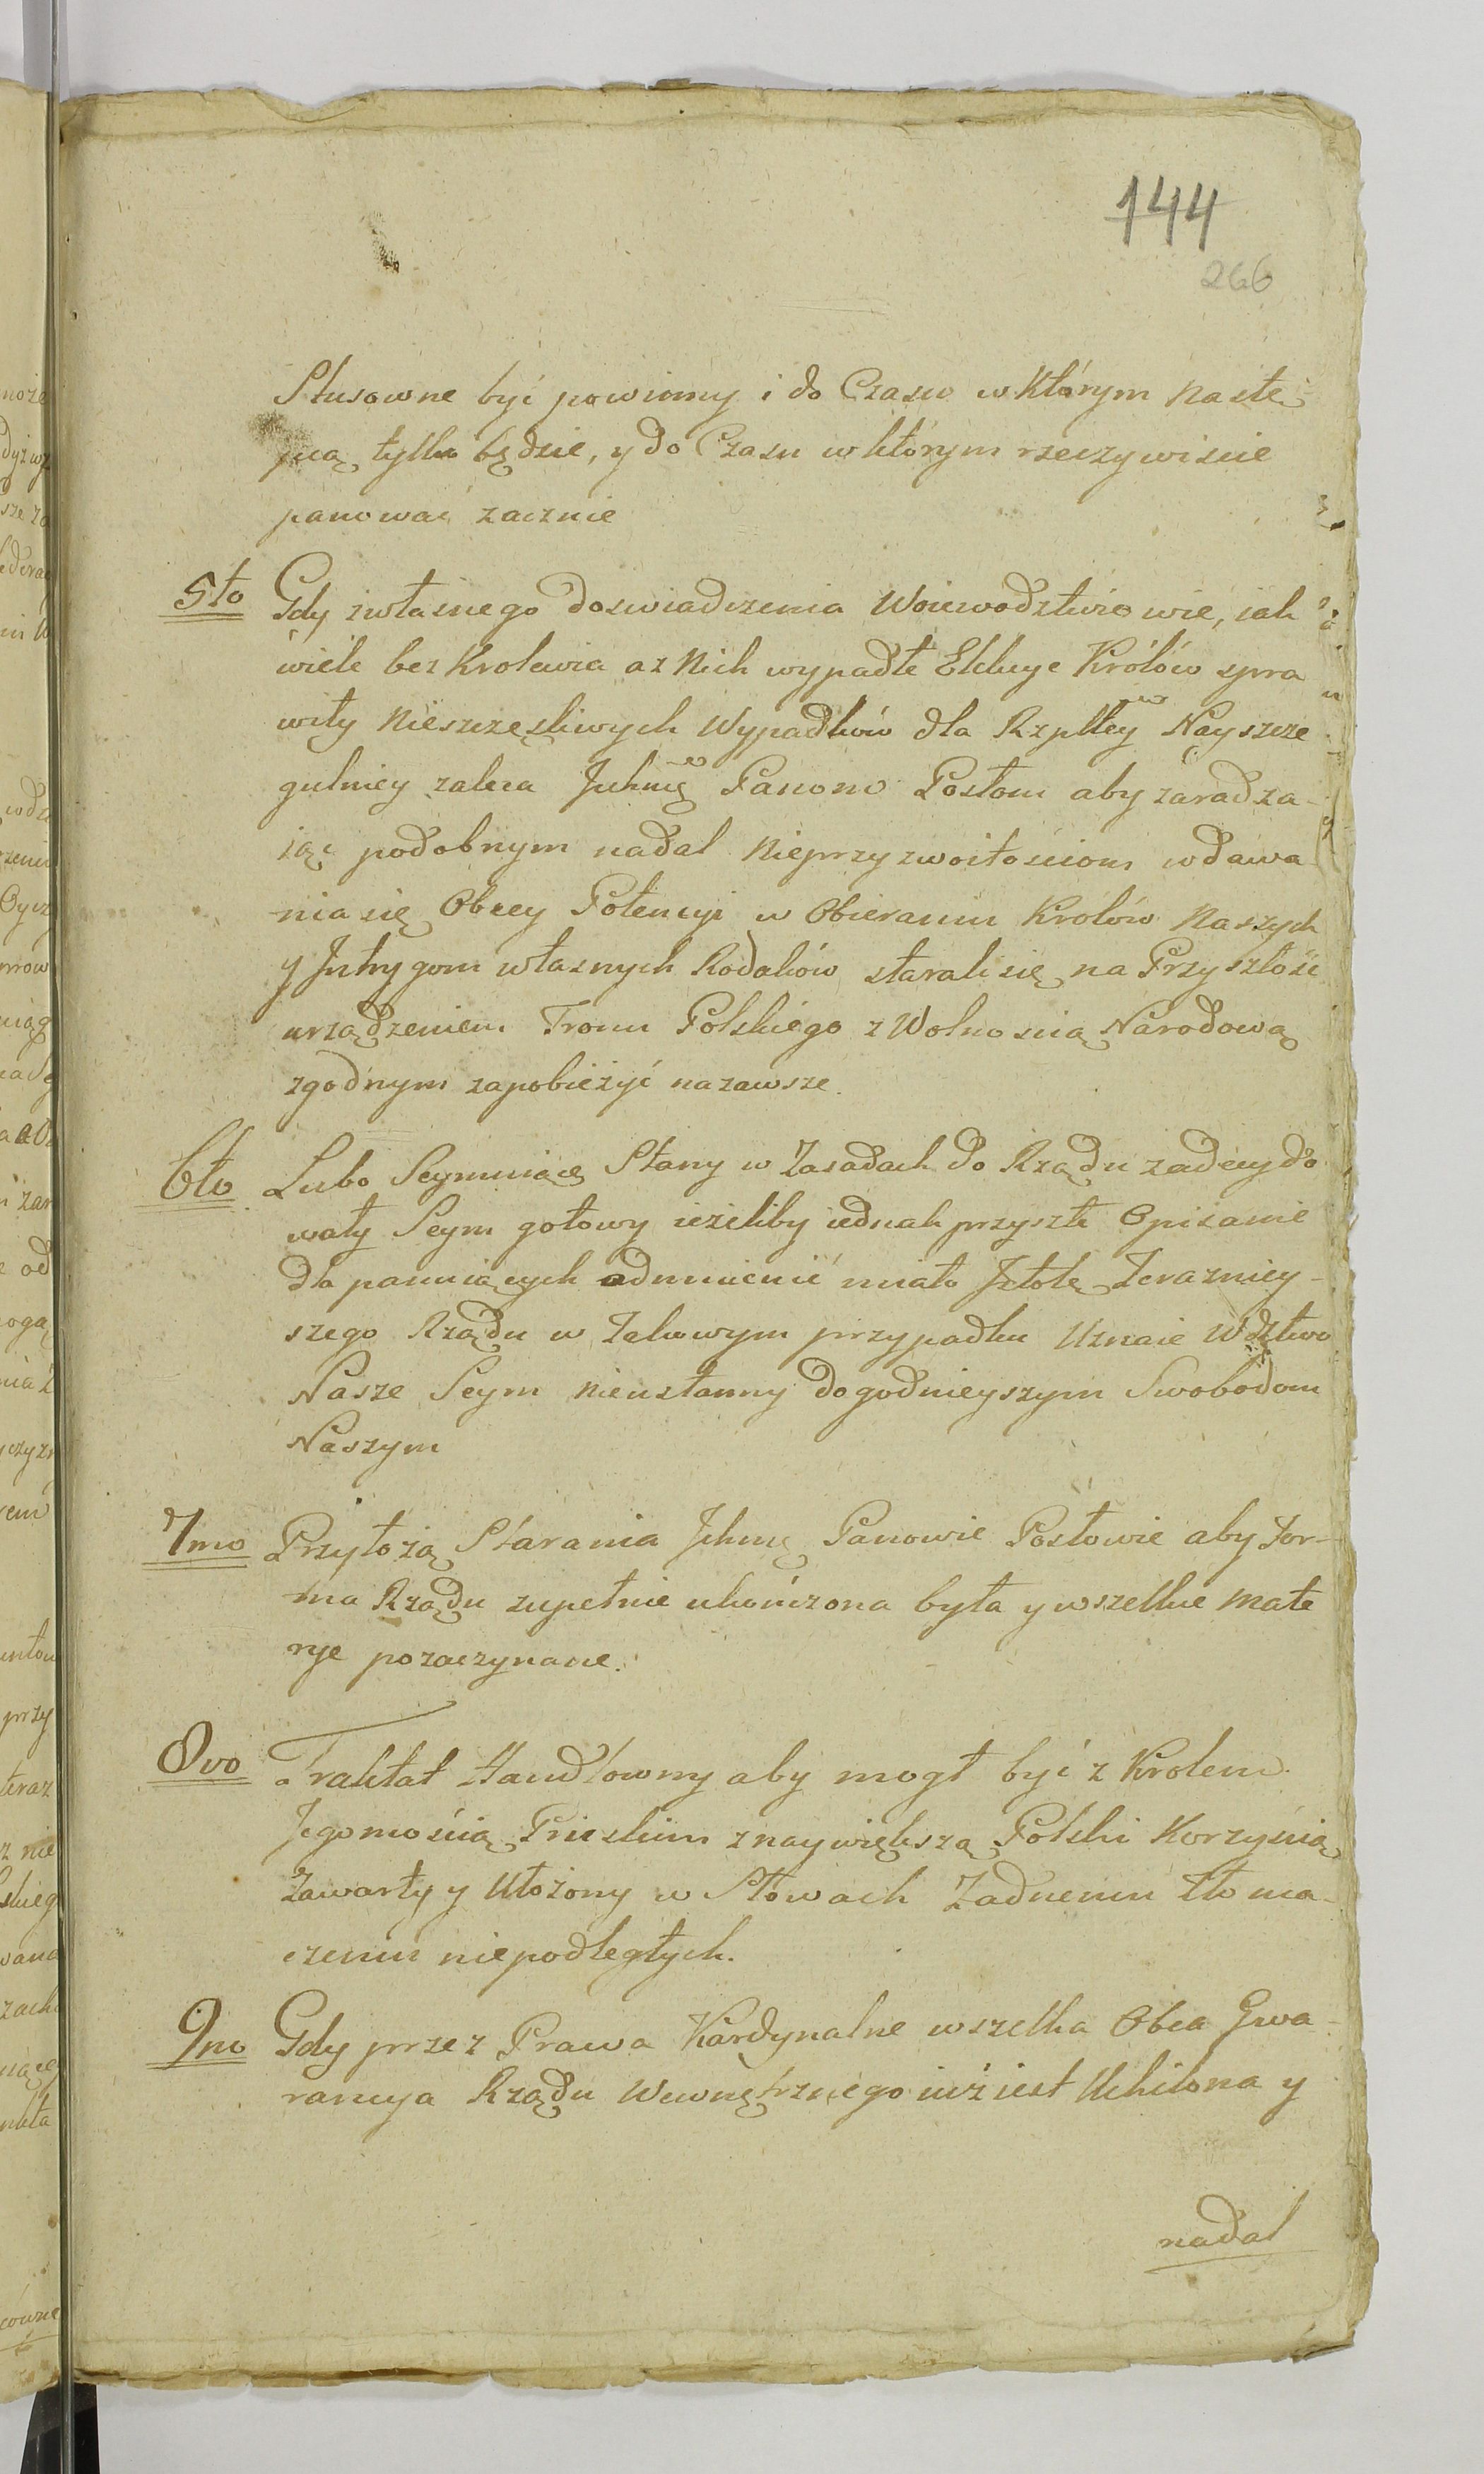 144
266
Stusowne być powinny i do Czasu w którym Nastę-
pcą tylko będzie, y do Czasu w którym rzeczywiscie
panować zacznie
5to Gdy zwłasnego doswiadczenia Woiewodztwo wie, iak
wiele bez Krolewia a z Nich wypadłe Elekcye Królów spra
wiły Nieszczęsliwych Wypadków dla Rzpltey Nayszcze
gulniey zaleca Jchmć Panom Posłom aby zaradza-
iąc podobnym nadal Nieprzyzwoitościom wdawa
nia się Obcey Potencyi w Obieraniu Królow Naszych
y Jntrygom własnych Rodaków starali się na Przyszłość
urządzeniem Tronu Polskiego z Wolnoscią Narodową
zgodnym zapobieżyć nazawsze.
6to Lubo Seymuiące Stany w Zasadach do Rządu zadecydo
wały Seym gotowy ieżeliby iednak przyszłe Opisanie
dla panuiących odmienić miało Jstotę Terazniey-
szego Rządu w Takowym przypadku Uznaie Wdztwo
Nasze Seym nieustanny dogodnieyszym Swobodom
Naszym
7mo Przyłożą Starania Jchmć Panowie Posłowie aby For-
ma Rządu zupełnie ukończona była y wszelkie Mate
rye pozaczynane.
8vo Traktat Handlowny aby mogł być z Krolem
Jegomością Pruskim z naywiększą Polski Korzyścią
Zawarty y Ułożony w Słowach Żadnemu tłoma-
czeniu niepodległych.
9no Gdy przez Prawa Kardynalne wszelka Obca Gwa-
rancya Rządu Wewnętrznego iuż iest Uchilona y
nadal